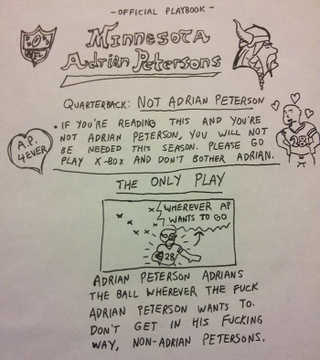 - OFFICIAL PLAYBOOK -
NFL
MINNESOTA
ADRIAN PETERSONS
QUARTERBACK: NOT ADRIAN PETERSON
• IF YOU'RE READING THIS AND YOU'RE
NOT ADRIAN PETERSON, YOU WILL NOT
BE NEEDED THIS SEASON. PLEASE GO
PLAY X-BOX AND DON'T BOTHER ADRIAN.
A.P.
4EVER
28
THE ONLY PLAY
WHEREVER AP
WANTS TO GO
28
ADRIAN PETERSON ADRIANS
THE BALL WHEREVER THE FUCK
ADRIAN PETERSON WANTS TO.
DON'T GET IN HIS FUCKING
WAY, NON-ADRIAN PETERSONS.